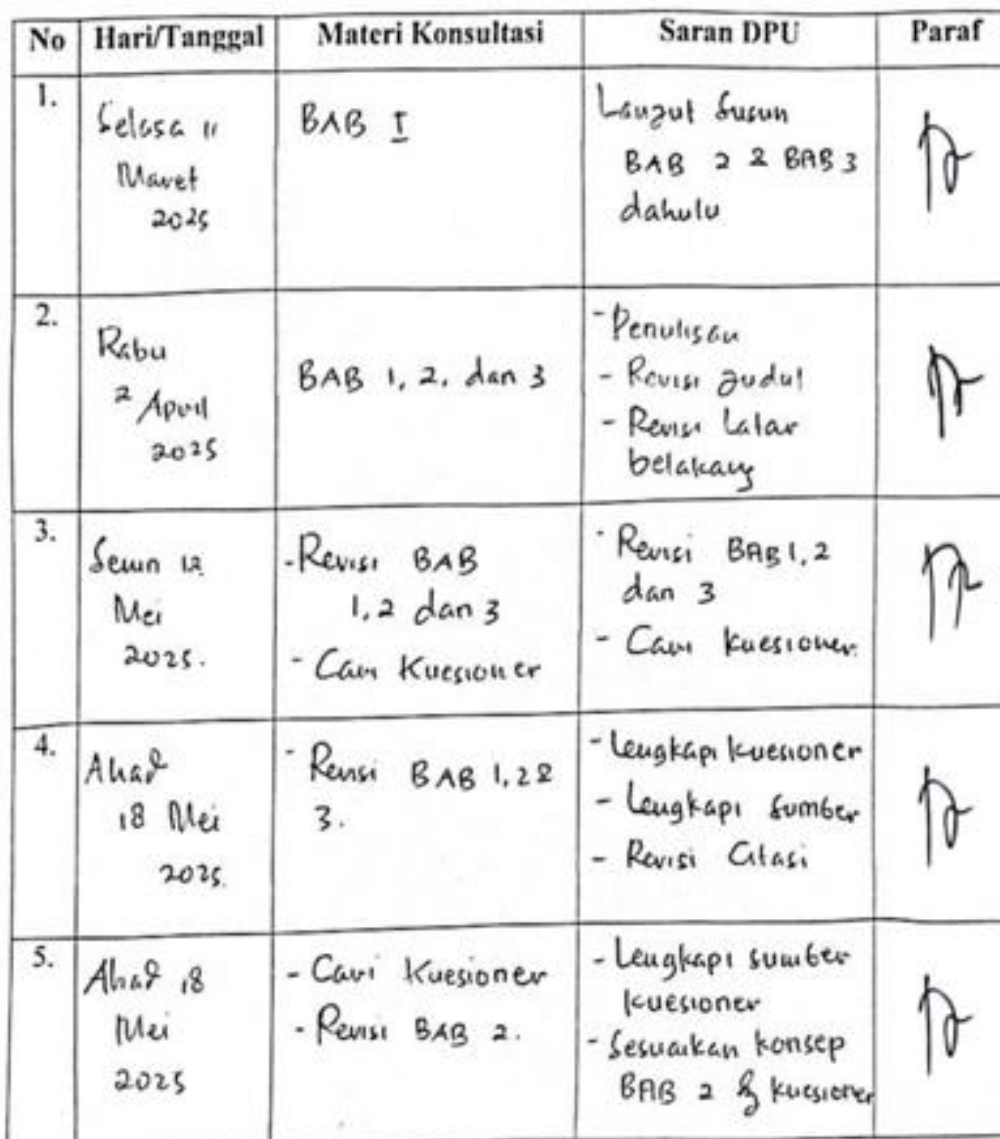 No Hari/Tanggal Materi Konsultasi Saran DPU Paraf
1.
Selasa 11
Maret
2025
BAB I
Lanjut susun
BAB 2 & BAB 3
dahulu
2.
Rabu
2 April
2025
BAB 1, 2, dan 3
- Penulisan
- Revisi judul
- Revisi Latar
belakang
3.
Senin 12
Mei
2025.
- Revisi BAB
1, 2 dan 3
- Cari Kuesioner
- Revisi BAB 1, 2
dan 3
- Cari kuesioner.
4.
Ahad
18 Mei
2025.
- Revisi BAB 1, 2 &
3.
- Lengkapi kuesioner
- Lengkapi sumber
- Revisi Citasi
5.
Ahad 18
Mei
2025
- Cari Kuesioner
- Revisi BAB 2.
- Lengkapi sumber
kuesioner
- Sesuaikan konsep
BAB 2 dg kuesioner